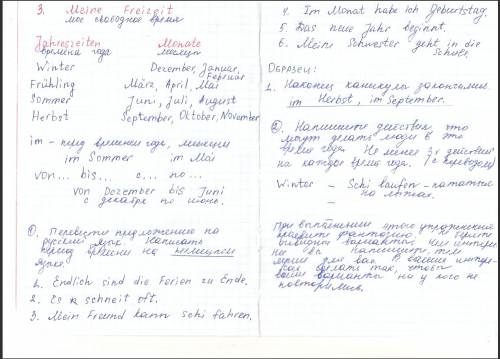 3. Meine Freizeit
мое свободное время
Jahreszeiten Monate
времена года месяцы
Winter Dezember, Januar, Februar
Frühling März, April, Mai
Sommer Juni, Juli, August
Herbst September, Oktober, November
im - перед временем года, месяцем
im Sommer im Mai
von... bis... с... по...
von Dezember bis Juni
с декабря по июнь.
①. Перевести предложения на
русский язык. Написать
период времени на немецком
языке.
1. Endlich sind die Ferien zu Ende.
2. Es schneit oft.
3. Mein Freund kann Schi fahren.
4. Im Monat habe ich Geburtstag.
5. Das neue Jahr beginnt.
6. Meine Schwester geht in die
Schule.
Образец:
1. Наконец каникулы закончились.
im Herbst, im September.
②. Напишите действия, что
могут делать люди в это
время года. Не менее 3х действий
на каждое время года. (с переводом)
Winter - Schi laufen - кататься
на лыжах.
-
-
При выполнении этого упражнения
проявите фантазию.
вариантов. Чем интерес
нее вы напишите, тем
лучше для вас. В ваших интере-
сах сделать так, чтобы
ваши варианты ни у кого не
повторились.